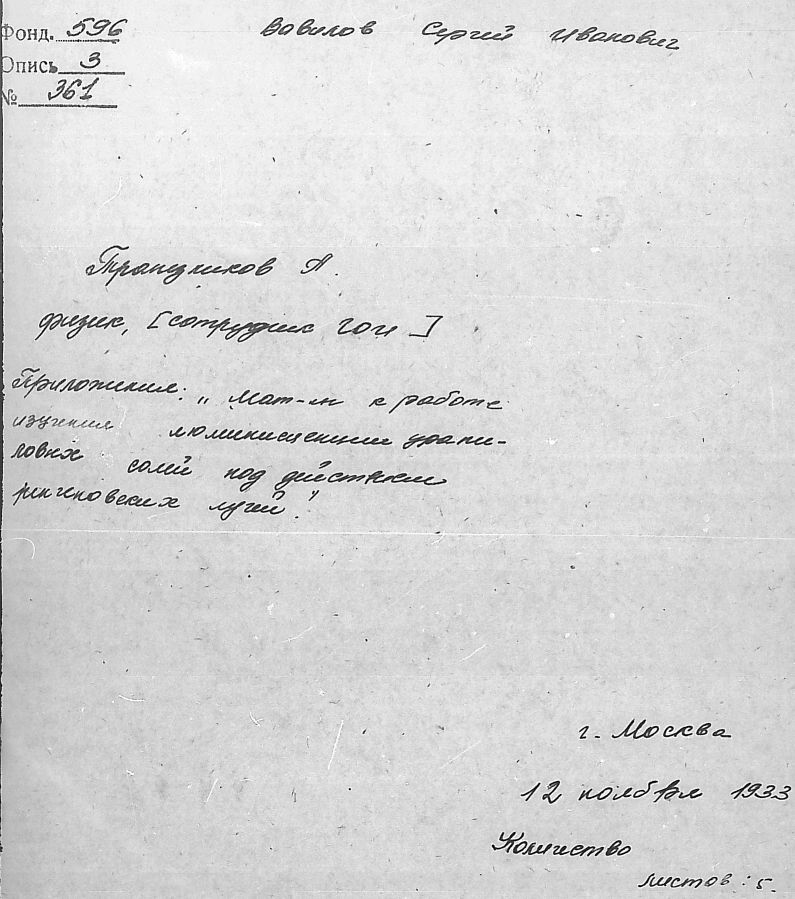 Фонд. 596
Вавилов Сергей Иванович
Опись 3
№ 361
А.
физик, [сотрудник ГОИ]
Приложения: „Мат-лы к работе
изучения люминисценции урани-
ловых солей под действием
рентгеновских лучей."
г. Москва
12 ноября 1933
Количество
листов: 5.